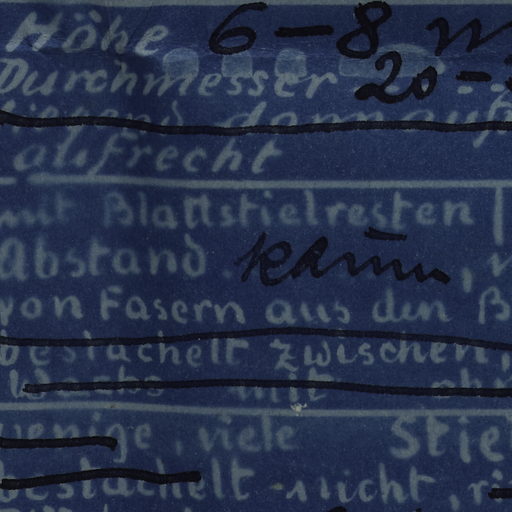 Höhe 6-8 m
Durchmesser 20-3
liegend dann auf
aufrecht
mit Blattstielresten
Abstand. kaum,
von Fasern aus den B
bestachelt zwischen,
Wachs mit ohn
wenige, viele Stiel
bestachelt - nicht, ri